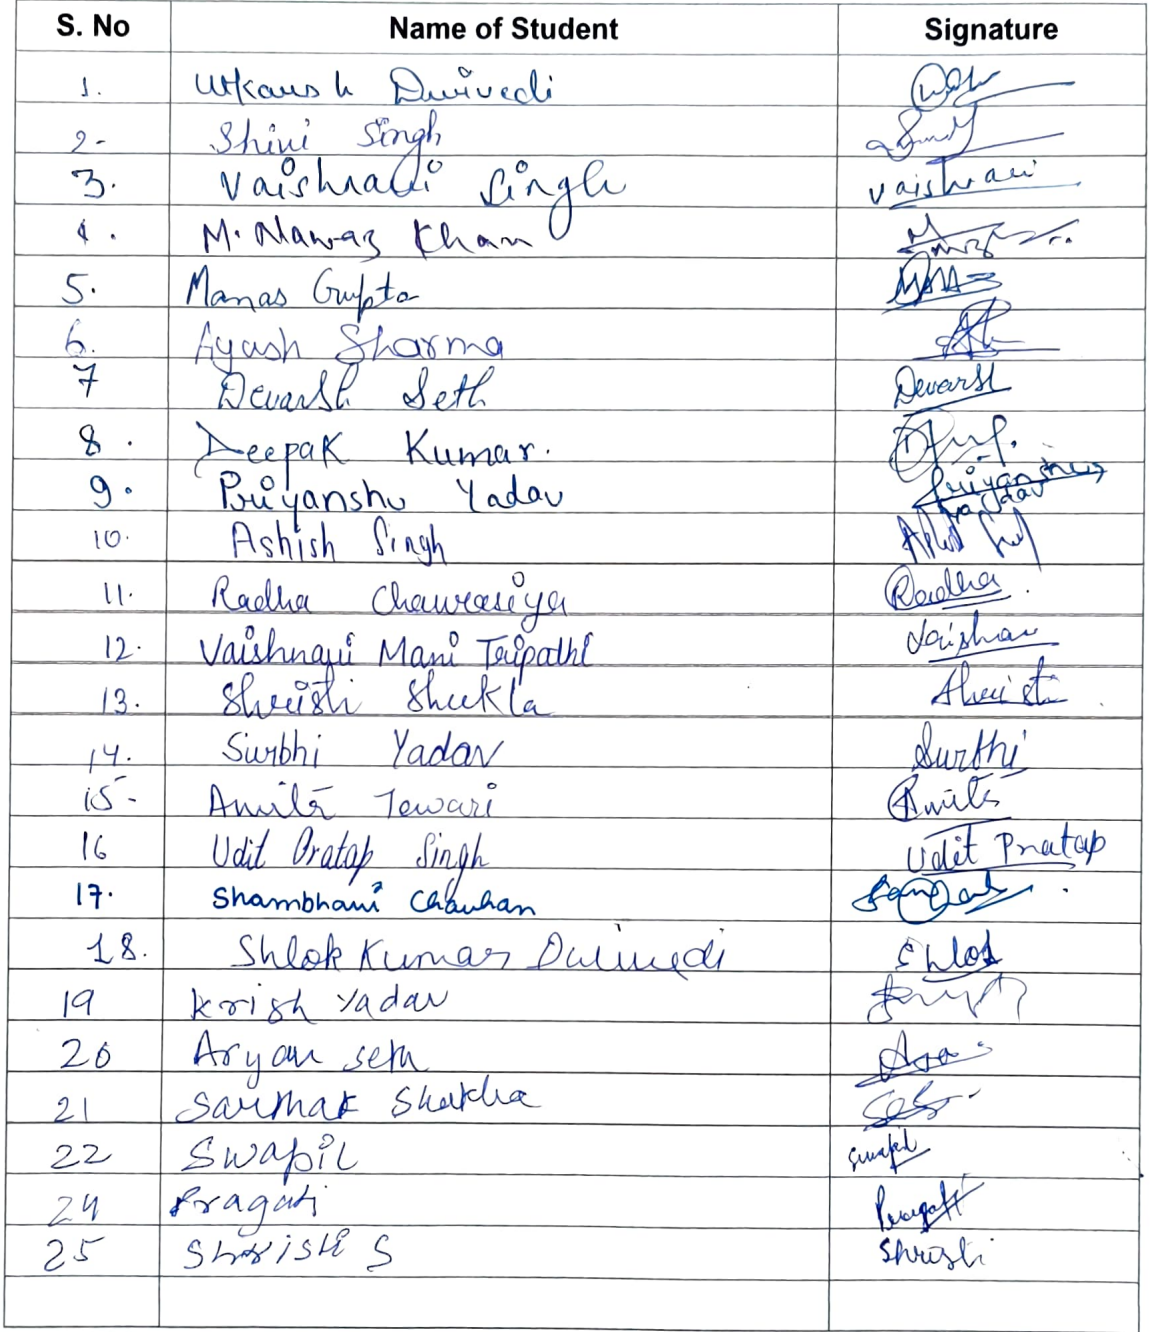 S. No Name of Student Signature
1. Utkarsh Dwivedi
2- Shivi Singh
3. Vaishnavi Singh Vaishnavi
4. M. Nawaz Khan
5. Manas Gupta
6. Ayush Sharma
7 Devarsh Seth Devarsh
8. Deepak Kumar.
9. Priyanshu Yadav Priyanshu Yadav
10. Ashish Singh
11. Radha Chaurasiya Radha
12. Vaishnavi Mani Tripathi Vaishnav
13. Shristi Shukla Shristi
14. Surbhi Yadav Surbhi
15- Amita Tewari Amita
16 Udit Pratap Singh Udit Pratap
17. Shambhavi Chauhan
18. Shlok Kumar Dwivedi Shlok
19 Krish Yadav
20 Aryan Seth
21 Sarthak
22 Swapil Swapil
24 Pragati Pragati
25 Shristi S Shristi